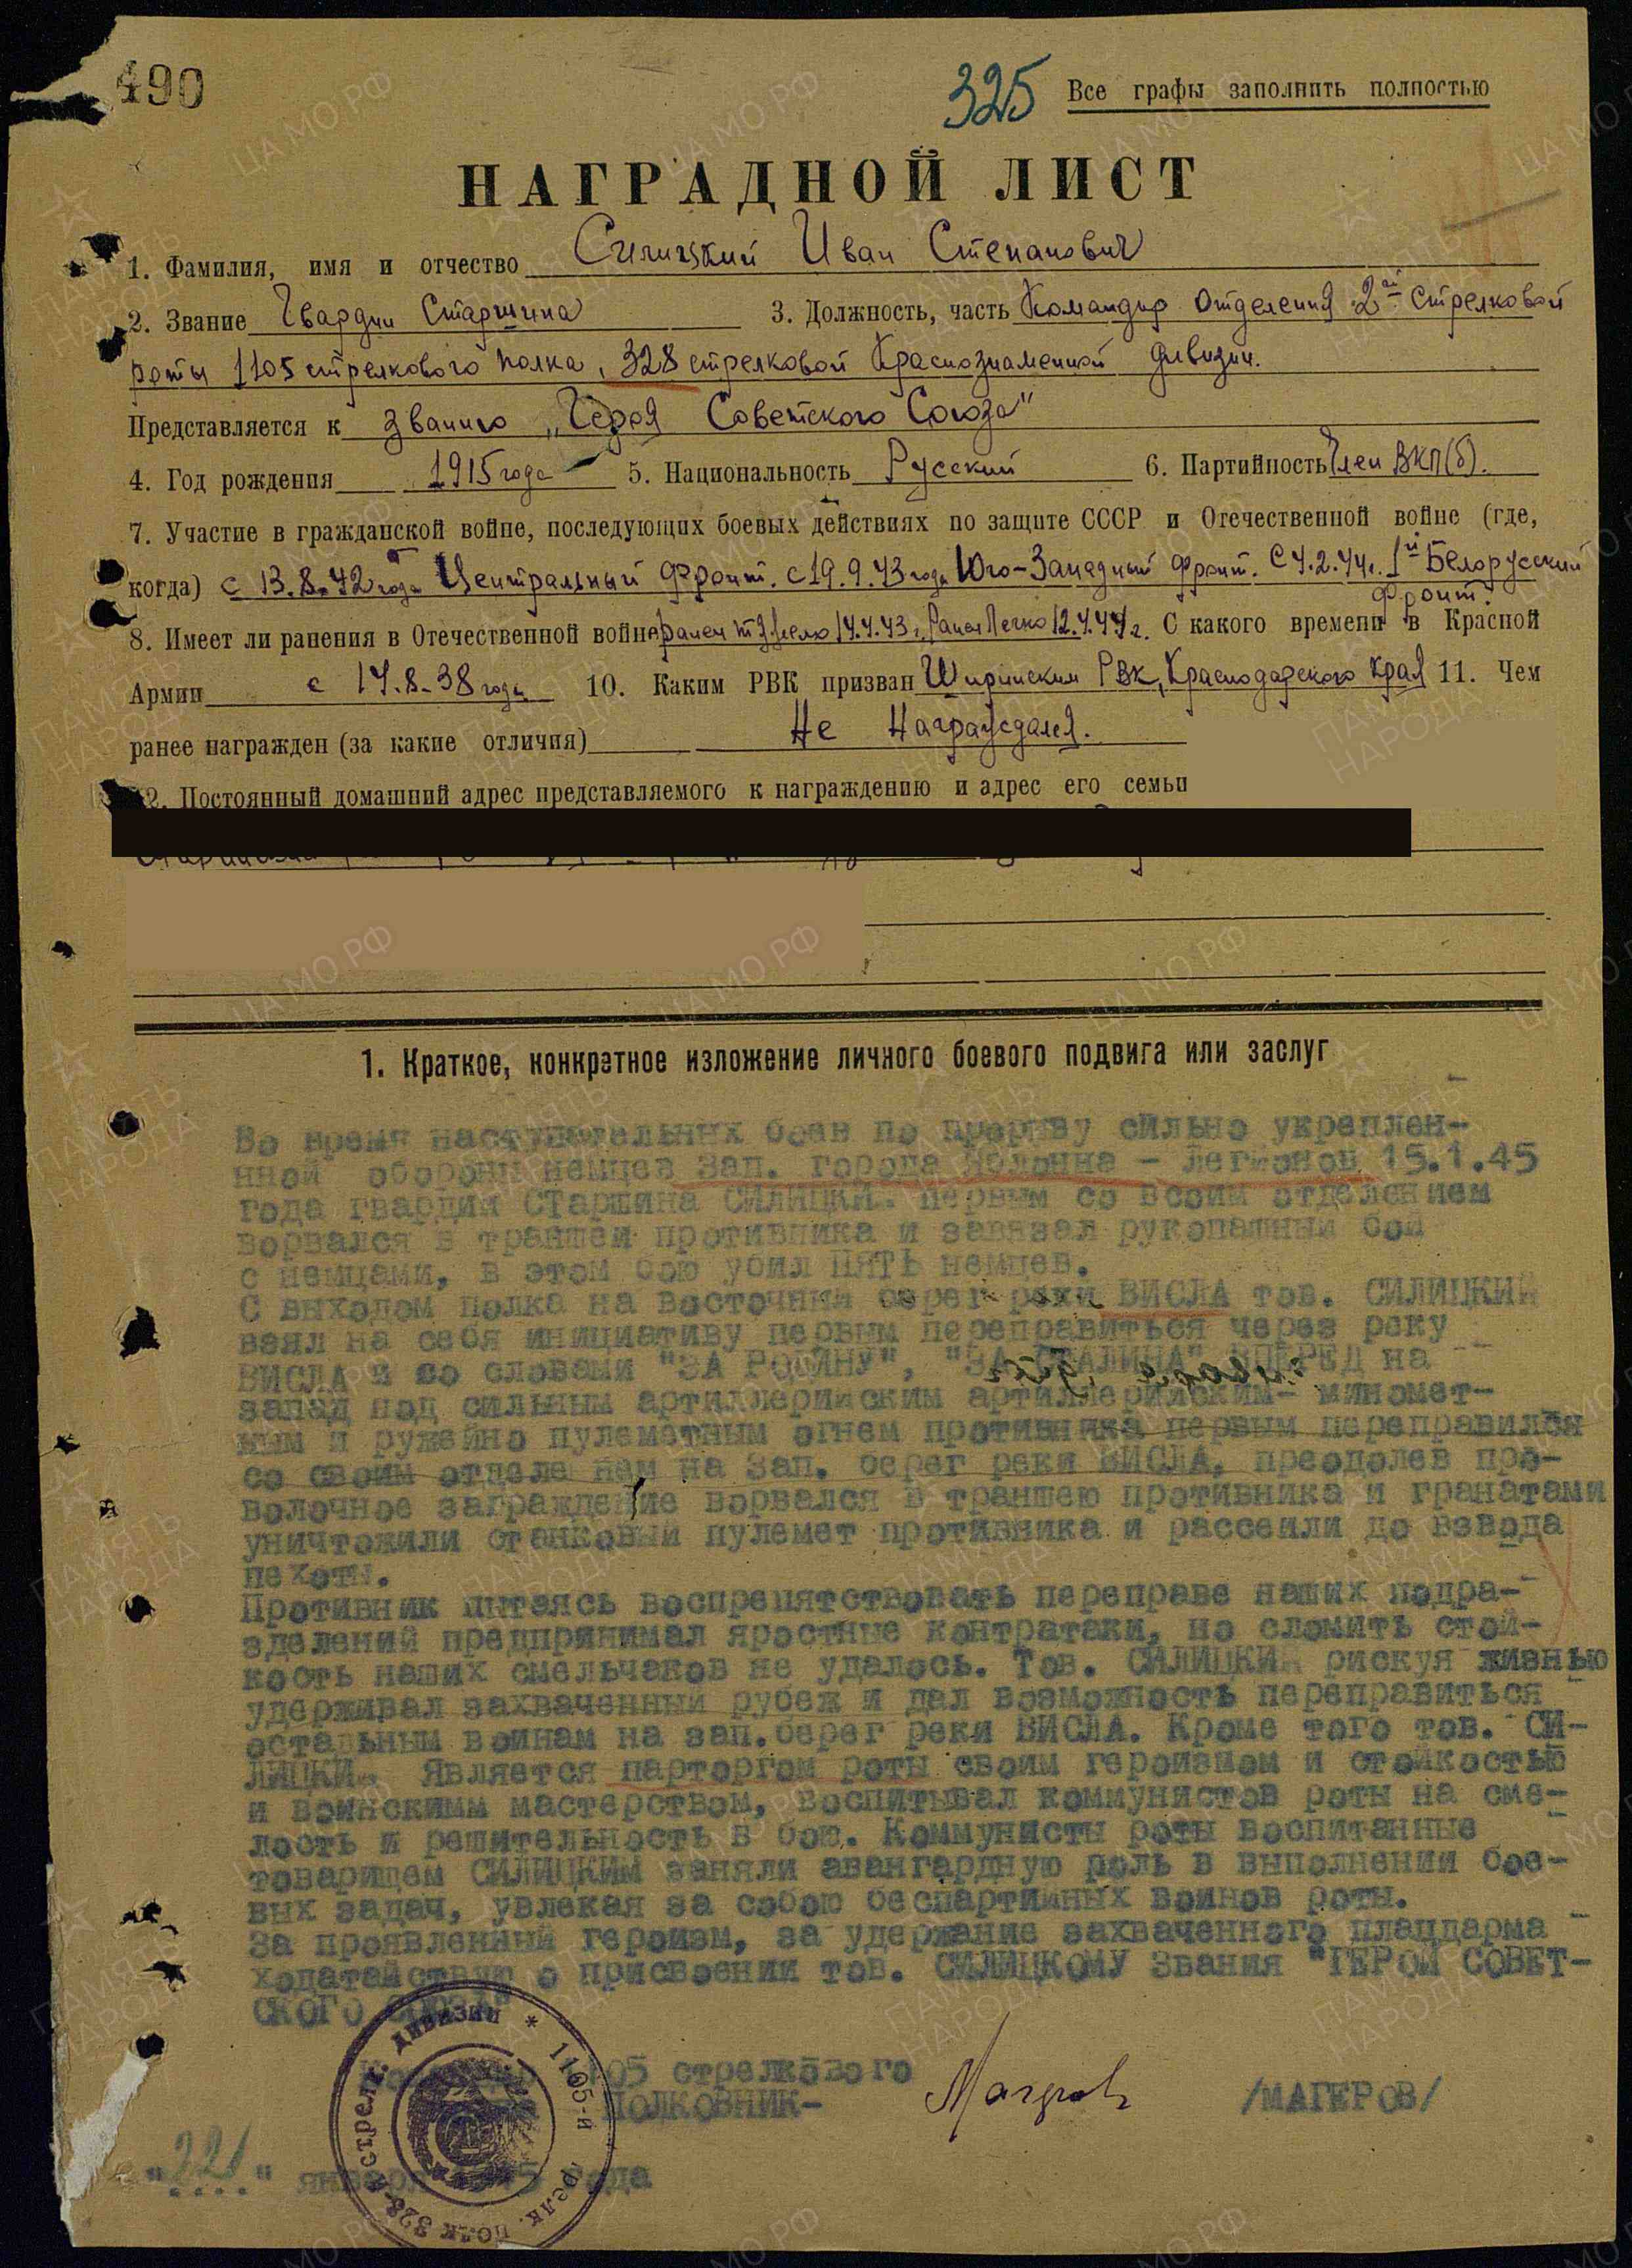 490
325
Все графы заполнить полностью
НАГРАДНОЙ ЛИСТ
1. Фамилия, имя и отчество Силицкий Иван Степанович
2. Звание Гвардии Старшина 3. Должность, часть Командир Отделения 2й Стрелковой
роты 1105 стрелкового полка, 328 стрелковой Краснознаменной дивизии.
Представляется к званию „Героя Советского Союза"
4. Год рождения 1915 года 5. Национальность Русский 6. Партийность Член ВКП(б).
7. Участие в гражданской войне, последующих боевых действиях по защите СССР и Отечественной войне (где,
когда) с 13.8.42 года Центральный Фронт. с 19.9.43 года Юго-Западный Фронт. С 4.2.44г. 1й Белорусский
Фронт.
8. Имеет ли ранения в Отечественной войне ранен тяжело 14.4.43г, Ранен Легко 12.4.44г. С какого времени в Красной
Армии с 17.8.38 года 10. Каким РВК призван РВК, Краснодарского Края 11. Чем
ранее награжден (за какие отличия) Не Награждался.
2. Постоянный домашний адрес представляемого к награждению и адрес его семьи
1. Краткое, конкретное изложение личного боевого подвига или заслуг
Во время наступательных боев по прорыву сильно укреплен-
нной обороны немцев Зап. города Яблонна - Легионов 15.1.45
года гвардии Старшина СИЛИЦКИЙ первым со всоим отделением
ворвался в траншеи противника и завязал рукопашный бой
с немцами, в этом бою убил ПЯТЬ немцев.
С выходом полка на восточный берег реки ВИСЛА тов. СИЛИЦКИЙ
взял на себя инициативу первым переправиться через реку
ВИСЛА и со словами "ЗА РОДИНУ", "ЗА СТАЛИНА" ВПЕРЕД на
запад под сильным артиллерийским артиллерийским- миномет-
ным и ружейно пулеметным огнем противника первым переправился
со своим отделе нем на Зап. берег реки ВИСЛА, преодолев про-
волочное заграждение ворвался в траншею противника и гранатами
уничтожили станковый пулемет противника и рассеяли до взвода
пехоты.
Противник пытаясь воспрепятствовать переправе наших подра-
зделений предпринимал яростные контратаки, но сломить стой-
кость наших смельчаков не удалось. Тов. СИЛИЦКИЙ рискуя жизнью
удерживал захваченный рубеж и дал возможность переправиться
остальным воинам на зап.берег реки ВИСЛА. Кроме того тов. СИ-
ЛИЦКИЙ Является парторгом роты своим героизмом и стойкостью
и воинскимм мастерством, воспитывал коммунистов роты на сме-
лость и решительность в бою. Коммунисты роты воспитанные
товарищем СИЛИЦКИМ заняли авангардную роль в выполнении бое-
вых задач, увлекая за собою беспартийных воинов роты.
За проявленный героизм, за удержание захваченного плацдарма
ходатайствую о присвоении тов. СИЛИЦКОМУ Звания "ГЕРОЙ СОВЕТ-
СКОГО СОЮЗА"
1105 стрелкового
ПОЛКОВНИК- Магеров /МАГЕРОВ/
"22" января 1945 года